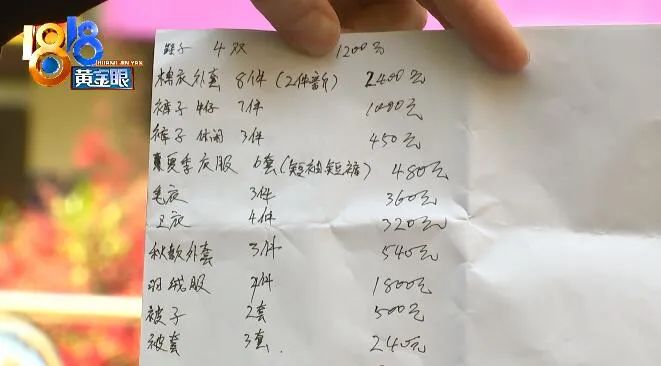 1818
HUANG JIN YAN
黄金眼
鞋子 4双 1200元
棉衣外套 8件(2件新) 2400元
裤子 牛仔 7件 1000元
裤子 休闲 3件 450元
夏季衣服 6套(短袖短裤) 480元
毛衣 3件 360元
卫衣 4件 320元
秋款外套 3件 540元
羽绒服 件 1800元
被子 2套 500元
被套 3套. 240元